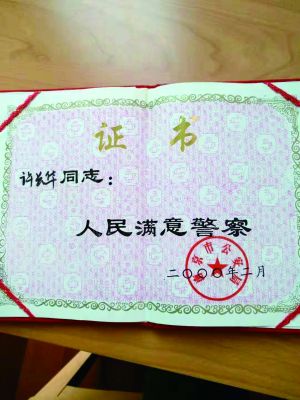 证书
许华同志：
人民满意警察
二〇〇〇年二月
南京市公安局